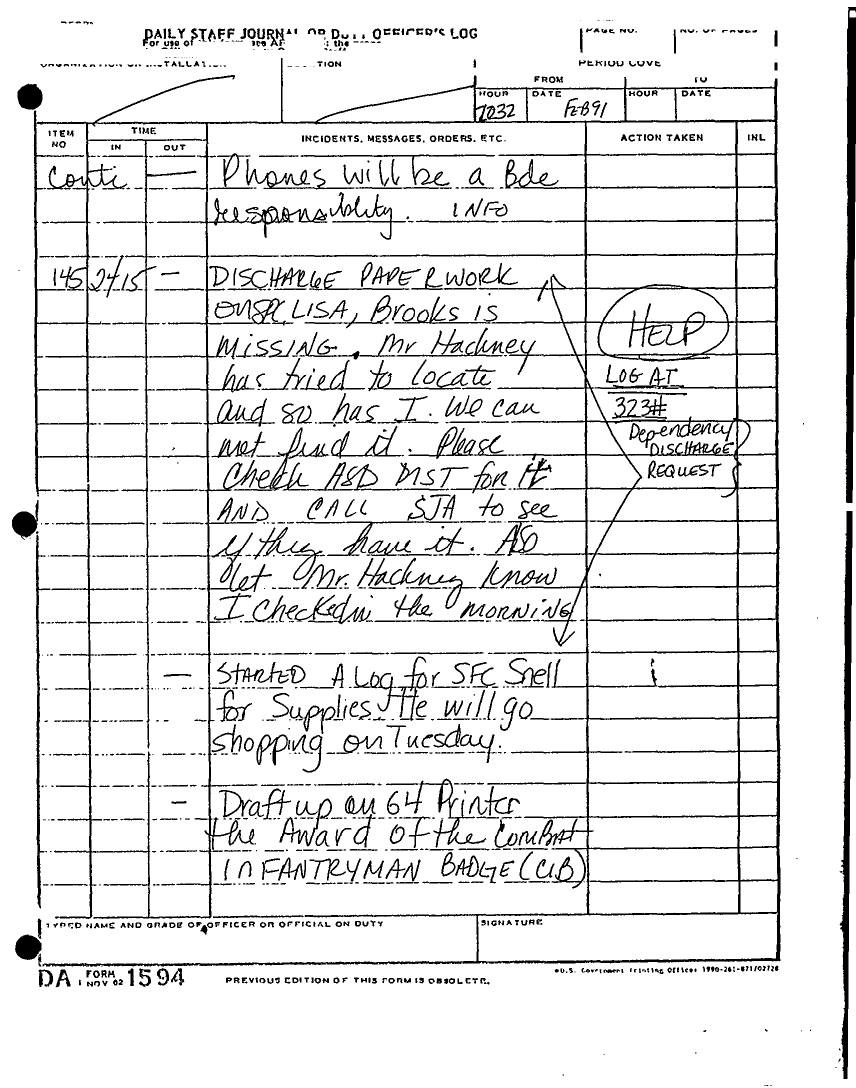 DAILY STAFF JOURNAL OR DUTY OFFICER'S LOG
For use of
PAGE NO.
NO. OF PAGES
PERIOD COVE
FROM
TO
HOUR
DATE
HOUR
DATE
FEB91
ITEM NO
TIME
IN
OUT
INCIDENTS, MESSAGES, ORDERS, ETC.
ACTION TAKEN
INL
Conti — Phones will be a Bde
responsibility. INFO
145 2415 — DISCHARGE PAPERWORK
LISA, Brooks is
MISSING. Mr Hackney
has tried to locate
and so has I. We can
not find it. Please
Check ASD DIST for it
AND CALL SJA to see
if they have it. ASO
let Mr. Hackney know
I checked in the MORNING
HELP
LOG AT
323#
Dependency
DISCHARGE
REQUEST
— STARTED A Log for SFC Snell
for Supplies. He will go
shopping on Tuesday.
— Draft up on 64 Printer
the Award of the COMBAT
INFANTRYMAN BADGE (CIB)
TYPED NAME AND GRADE OF OFFICER OR OFFICIAL ON DUTY
SIGNATURE
DA FORM 1 NOV 62 1594
PREVIOUS EDITION OF THIS FORM IS OBSOLETE.
U.S. Government Printing Office: 1990-261-871/02728